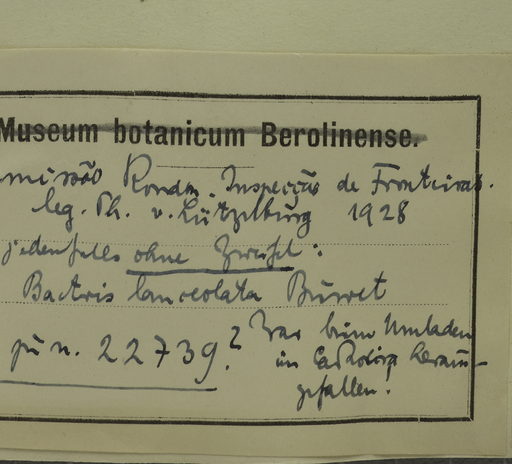 Museum botanicum Berolinense.
missão Rondon. Inspecção de Fronteiras.
leg. Ph. v. Lützelburg 1928
jedenfalls ohne Zweifel:
Bactris lanceolata Burret
zu n. 22739? War beim Umladen
im heraus-
gefallen!